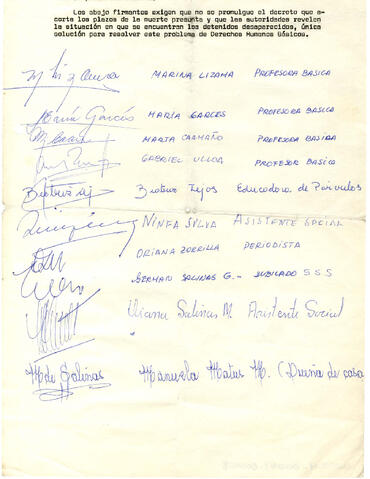 Los abajo firmantes exigen que no se promulgue el decreto que a-
corta los plazos de la muerte presunta y que las autoridades revelen
la situación en que se encuentran los detenidos desaparecidos, única
solución para resolver este problema de Derechos Humanos Básicos.
MARINA LIZAMA PROFESORA BASICA
María Garcés MARÍA GARCES PROFESORA BASICA
MARTA CAAMAÑO PROFESORA BASICA
GABRIEL ULLOA PROFESOR BASICO
Beatriz Tejos Educadora de Párvulos
NINFA SILVA ASISTENTE SOCIAL
ORIANA ZORRILLA PERIODISTA
GERMAN SALINAS G. - JUBILADO S S S
Eliana Salinas M. Asistente Social
M de Salinas Manuela Matus M. (Dueña de casa